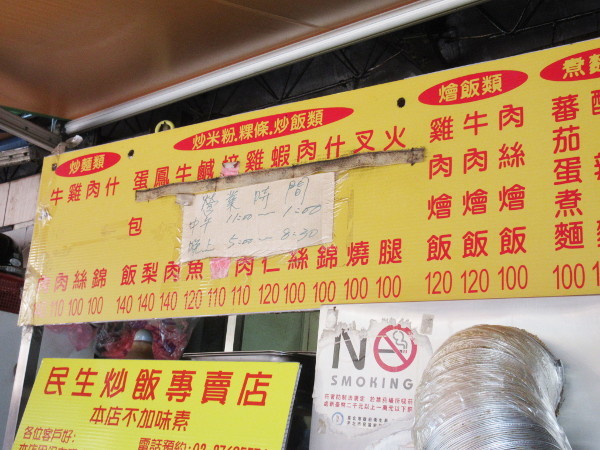 炒麵類
牛肉 110
雞肉 110
肉絲 100
什錦 100
炒米粉.粿條.炒飯類
蛋包飯 140
鳳梨 140
牛肉 140
鹹魚 120
110
雞肉 110
蝦仁 120
肉絲 100
什錦 100
叉燒 100
火腿 100
燴飯類
雞肉燴飯 120
牛肉燴飯 120
肉絲燴飯 100
煮麵
蕃茄蛋煮麵 100
營業時間
中午 11:00~1:00
晚上 5:00~8:30
民生炒飯專賣店
本店不加味素
各位客戶好:
電話預約:02-
NO
SMOKING